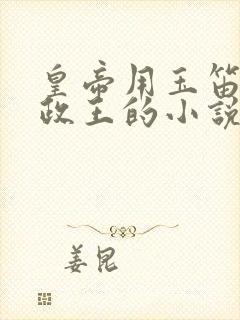 皇帝用玉笛
政王的小说
姜昆